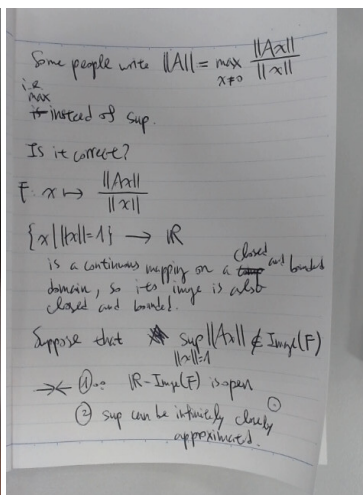 Some people write ||A|| = max_{x≠0} ||Ax|| / ||x||
i.e
max
instead of sup.
Is it correct?
F: x ↦ ||Ax|| / ||x||
{x | ||x||=1} → ℝ
is a continuous mapping on a closed and bounded
domain, so its image is also
closed and bounded.
Suppose that sup_{||x||=1} ||Ax|| ∉ Image(F)
→← ① ∵ ℝ - Image(F) is open
② sup can be infinitely closely
approximated.